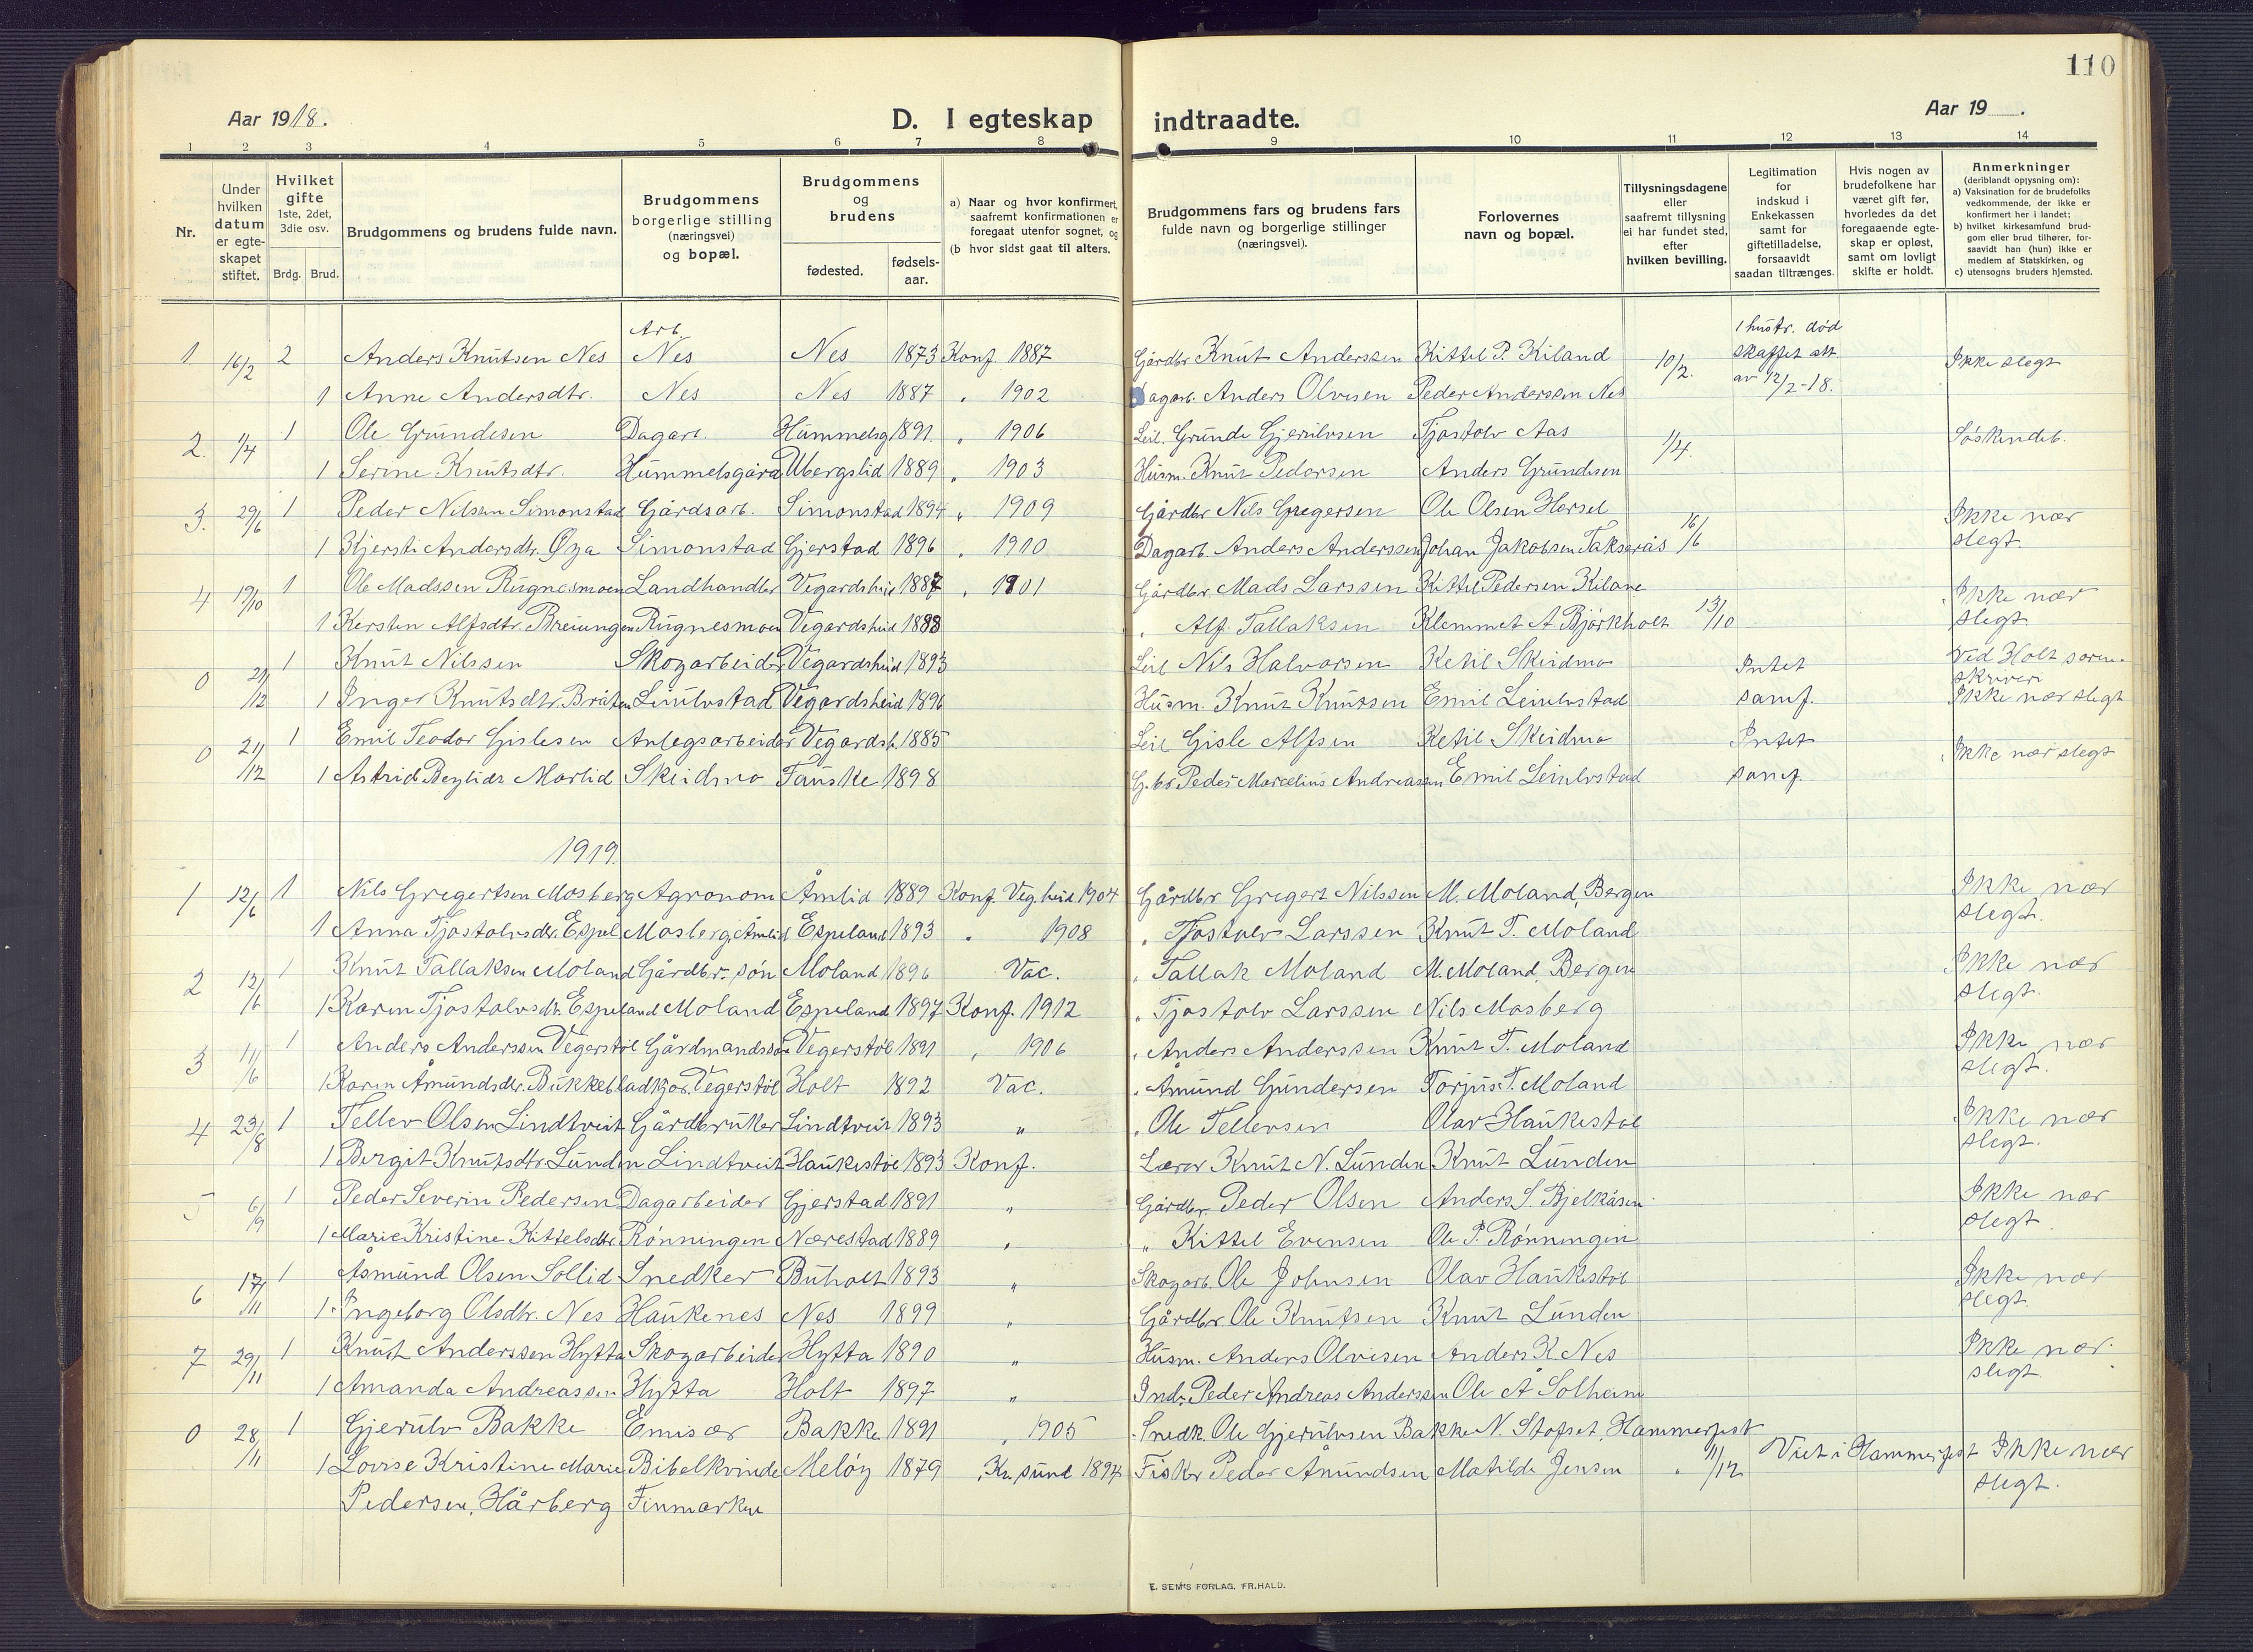 110
Aar 1918. D. I egteskap indtraadte. Aar 19 .
1 2 3 4 5 6 7 8 9 10 11 12 13 14
Nr.
Under hvilken datum er egte-skapet stiftet.
Hvilket gifte 1ste, 2det, 3die osv.
Brdg. Brud.
Brudgommens og brudens fulde navn.
Brudgommens borgerlige stilling (næringsvei) og bopæl.
Brudgommens og brudens
fødested. fødsels-aar.
a) Naar og hvor konfirmert, saafremt konfirmationen er foregaat utenfor sognet, og
(b hvor sidst gaat til alters.
Brudgommens fars og brudens fars fulde navn og borgerlige stillinger (næringsvei).
Forlovernes navn og bopæl.
Tillysningsdagene eller saafremt tillysning ei har fundet sted, efter hvilken bevilling.
Legitimation for indskud i Enkekassen samt for giftetilladelse, forsaavidt saadan tiltrænges.
Hvis nogen av brudefolkene har været gift før, hvorledes da det foregaaende egte-skap er opløst, samt om lovligt skifte er holdt.
Anmerkninger (deriblandt opiysning om):
a) Vaksination for de brudefolks vedkommende, der ikke er konfirmert her i landet;
b) hvilket kirkesamfund brud-gom eller brud tilhører, for-saavidt han (hun) ikke er medlem af Statskirken, og
c) utensogns bruders hjemsted.
1 16/2 2 Anders Knutsen Nes Arb. Nes Nes 1873 Konf. 1887 Gårdbr. Knut Anderssen Kittel P. Kiland 10/2. 1 hustr. død skaffet att av 12/2-18. Ikke slegt
1 Anne Andersdtr. Nes Nes 1887 " 1902 Dagarb. Anders Olvesen Peder Anderssen Nes
2. 1/4 1 Ole Grundesen Dagarb. Hummelsg 1891. " 1906 Leil. Grunde Gjerulvsen Tjostolv Aas 1/4. Søskendeb.
1 Serine Knutsdtr. Hummelsgård Ubergslid 1889 " 1903 Husm. Knut Pedersen Anders Grundesen
3. 29/6 1 Peder Nilsen Simonstad Gårdsarb. Simonstad 1894 " 1909 Gårdbr Nils Gregersen Ole Olsen Hersel 16/6 Ikke nær slegt.
1 Kjersti Andersdtr. Øya Simonstad Gjerstad 1896 " 1910 Dagarb. Anders Anderssen Johan Jakobsen Takserås
4 19/10 1 Ole Madssen Rugnesmoen Landhandler Vegardsheid 1887 " 1901 Gårdbr. Mads Larssen Kittel Pedersen Kilane 13/10 Ikke nær slegt.
1 Kersten Alfsdtr. Breiungen Rugnesmoen Vegardsheid 1888 " Alf Tallaksen Klemmet A Bjørkholt
0 21/12 1 Knut Nilssen Skogarbeider Vegardsheid 1893 Leil Nils Halvorsen Ketil Skeidmo Intet Ved Holt soren-skriveri
1 Inger Knutsdtr. Bråten Leiulvstad Vegardsheid 1896 Husm. Knut Knutsen Emil Leiulvstad samf. Ikke nær slegt
0 21/12 1 Emil Teodor Gislesen Anlegsarbeider Vegardsh. 1885 Leil Gisle Alfsen Ketil Skeidmo Intet Ikke nær slegt
1 Astrid Marlid Skeidmo Fauske 1898 G.br. Peder Marcelius Andreassen Emil Leiulvstad samf
1919.
1 12/6 1 Nils Gregertsen Mosberg Agronom Åmlid 1889 Konf. Veg.heid 1904 Gårdbr Gregert Nilssen M. Moland, Bergen Ikke nær slegt.
1 Anna Tjostolvsdtr. Espel Mosberg, Åmlid Espeland 1893 " 1908 " Tjostolv Larssen Knut T. Moland
2 12/6 1 Knut Tallaksen Moland Gårdbr.søn Moland 1896 Vac. " Tallak Moland M. Moland, Bergen Ikke nær slegt.
1 Karen Tjostolvsdt. Espeland Moland Espeland 1897 Konf. 1912 " Tjostolv Larssen Nils Mosberg
3 11/6 1 Anders Anderssen Vegerstøl Gårdmandssøn Vegerstøl 1891 " 1906 " Anders Anderssen Knut T. Moland Ikke nær slegt.
1 Karen Åmundsdtr. Vegerstøl Holt 1892 Vac. " Åmund Gundersen Torjus T. Moland
4 23/8 1 Tellev Olsen Lindtveit Gårdbruker Lindtveit 1893 " " Ole Tellevsen Olav Haukestøl Ikke nær slegt.
1 Bergit Knutsdtr Lunden Lindtveit Haukestøl 1893 Konf. Lærer Knut N. Lunden Knut Lunden
5 6/9 1 Peder Severin Pedersen Dagarbeider Gjerstad 1891 " Gårdbr. Peder Olsen Anders S. Bjelkåsen Ikke nær slegt.
1 Marie Kristine Kittelsdtr. Rønningen Nærestad 1889 " " Kittel Evensen Ole P. Rønningen
6 17/11 1 Åsmund Olsen Sollid Snedker Buholt 1893 " Skogarb. Ole Johnsen Olav Haukestøl Ikke nær slegt.
1 Ingeborg Olsdtr. Nes Haukenes Nes 1899 " Gårdbr. Ole Knutsen Knut Lunden
7 29/11 1 Knut Anderssen Hytta Skogarbeider Hytta 1890 " Husm. Anders Olvesen Anders K. Nes Ikke nær slegt.
1 Amanda Andreassen Hytta Holt 1897 " Indr. Peder Andreas Anderssen Ole A Solheim
0 28/11 1 Gjerulv Bakke Emisær Bakke 1891 " 1905 Snedk. Ole Gjerulvsen Bakke N. Stofset, Hammerfest
1 Lovise Kristine Marie Bibelkvinde Meløy 1879 Kr.sund 1894 Fisker Peder Amundsen Matilde Jensen " 11/12 Viet i Hammerfest Ikke nær slegt.
Pedersen, Hårberg Finmarken
E. SEM'S FORLAG. FR.HALD.